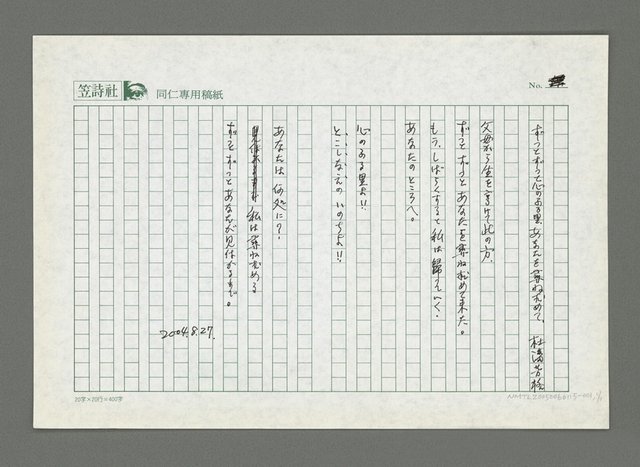 笠詩社
同仁専用稿紙
No.
ずっとずっと心のある里、あなたを尋ね求めて、 杜潘芳格
父母から生を享けて此の方、
ずっとずっとあなたを尋ね求めて来た。
もう、しばらくすると私は歸えりゆく、
あなたのところへ。
心のある里よ!!
とこしなえの いのちよ!!
あなたは 何処に?
私は尋ね求める
ずっとずっとあなたが見付かるまで。
2004.8.27.
20字×20行=400字
NMTL20050060115-001,1/1